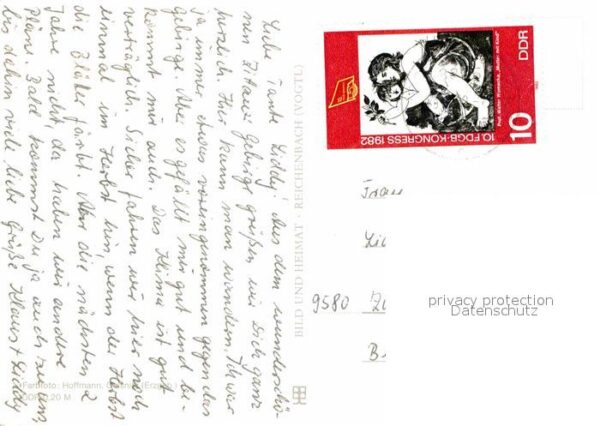 Liebe Tante Liddy! Aus dem wunderschö-
nen Zittauer Gebirge grüßen wir Dich ganz
herzlich. Hier kann man wandern. Ich war
ja immer etwas voreingenommen gegen das
Gebirge. Aber es gefällt mir gut und be-
kommt mir auch. Das Klima ist gut
verträglich. Sicher fahren wir hier noch
einmal im Herbst hin, wenn der Herbst
die Blätter färbt. Aber die nächsten 2
Jahre nicht, da haben wir andere
Pläne. Bald kommst Du ja auch zu uns,
bis dahin viele liebe Grüße Klaus +
Farbfoto: Hoffmann, (Erzgeb.)
M
BILD UND HEIMAT · REICHENBACH (VOGTL)
10 FDGB-KONGRESS 1982
10
DDR
Prof. Walter Womacka „Mutter mit Kind“
Frau
9580
privacy protection
Datenschutz